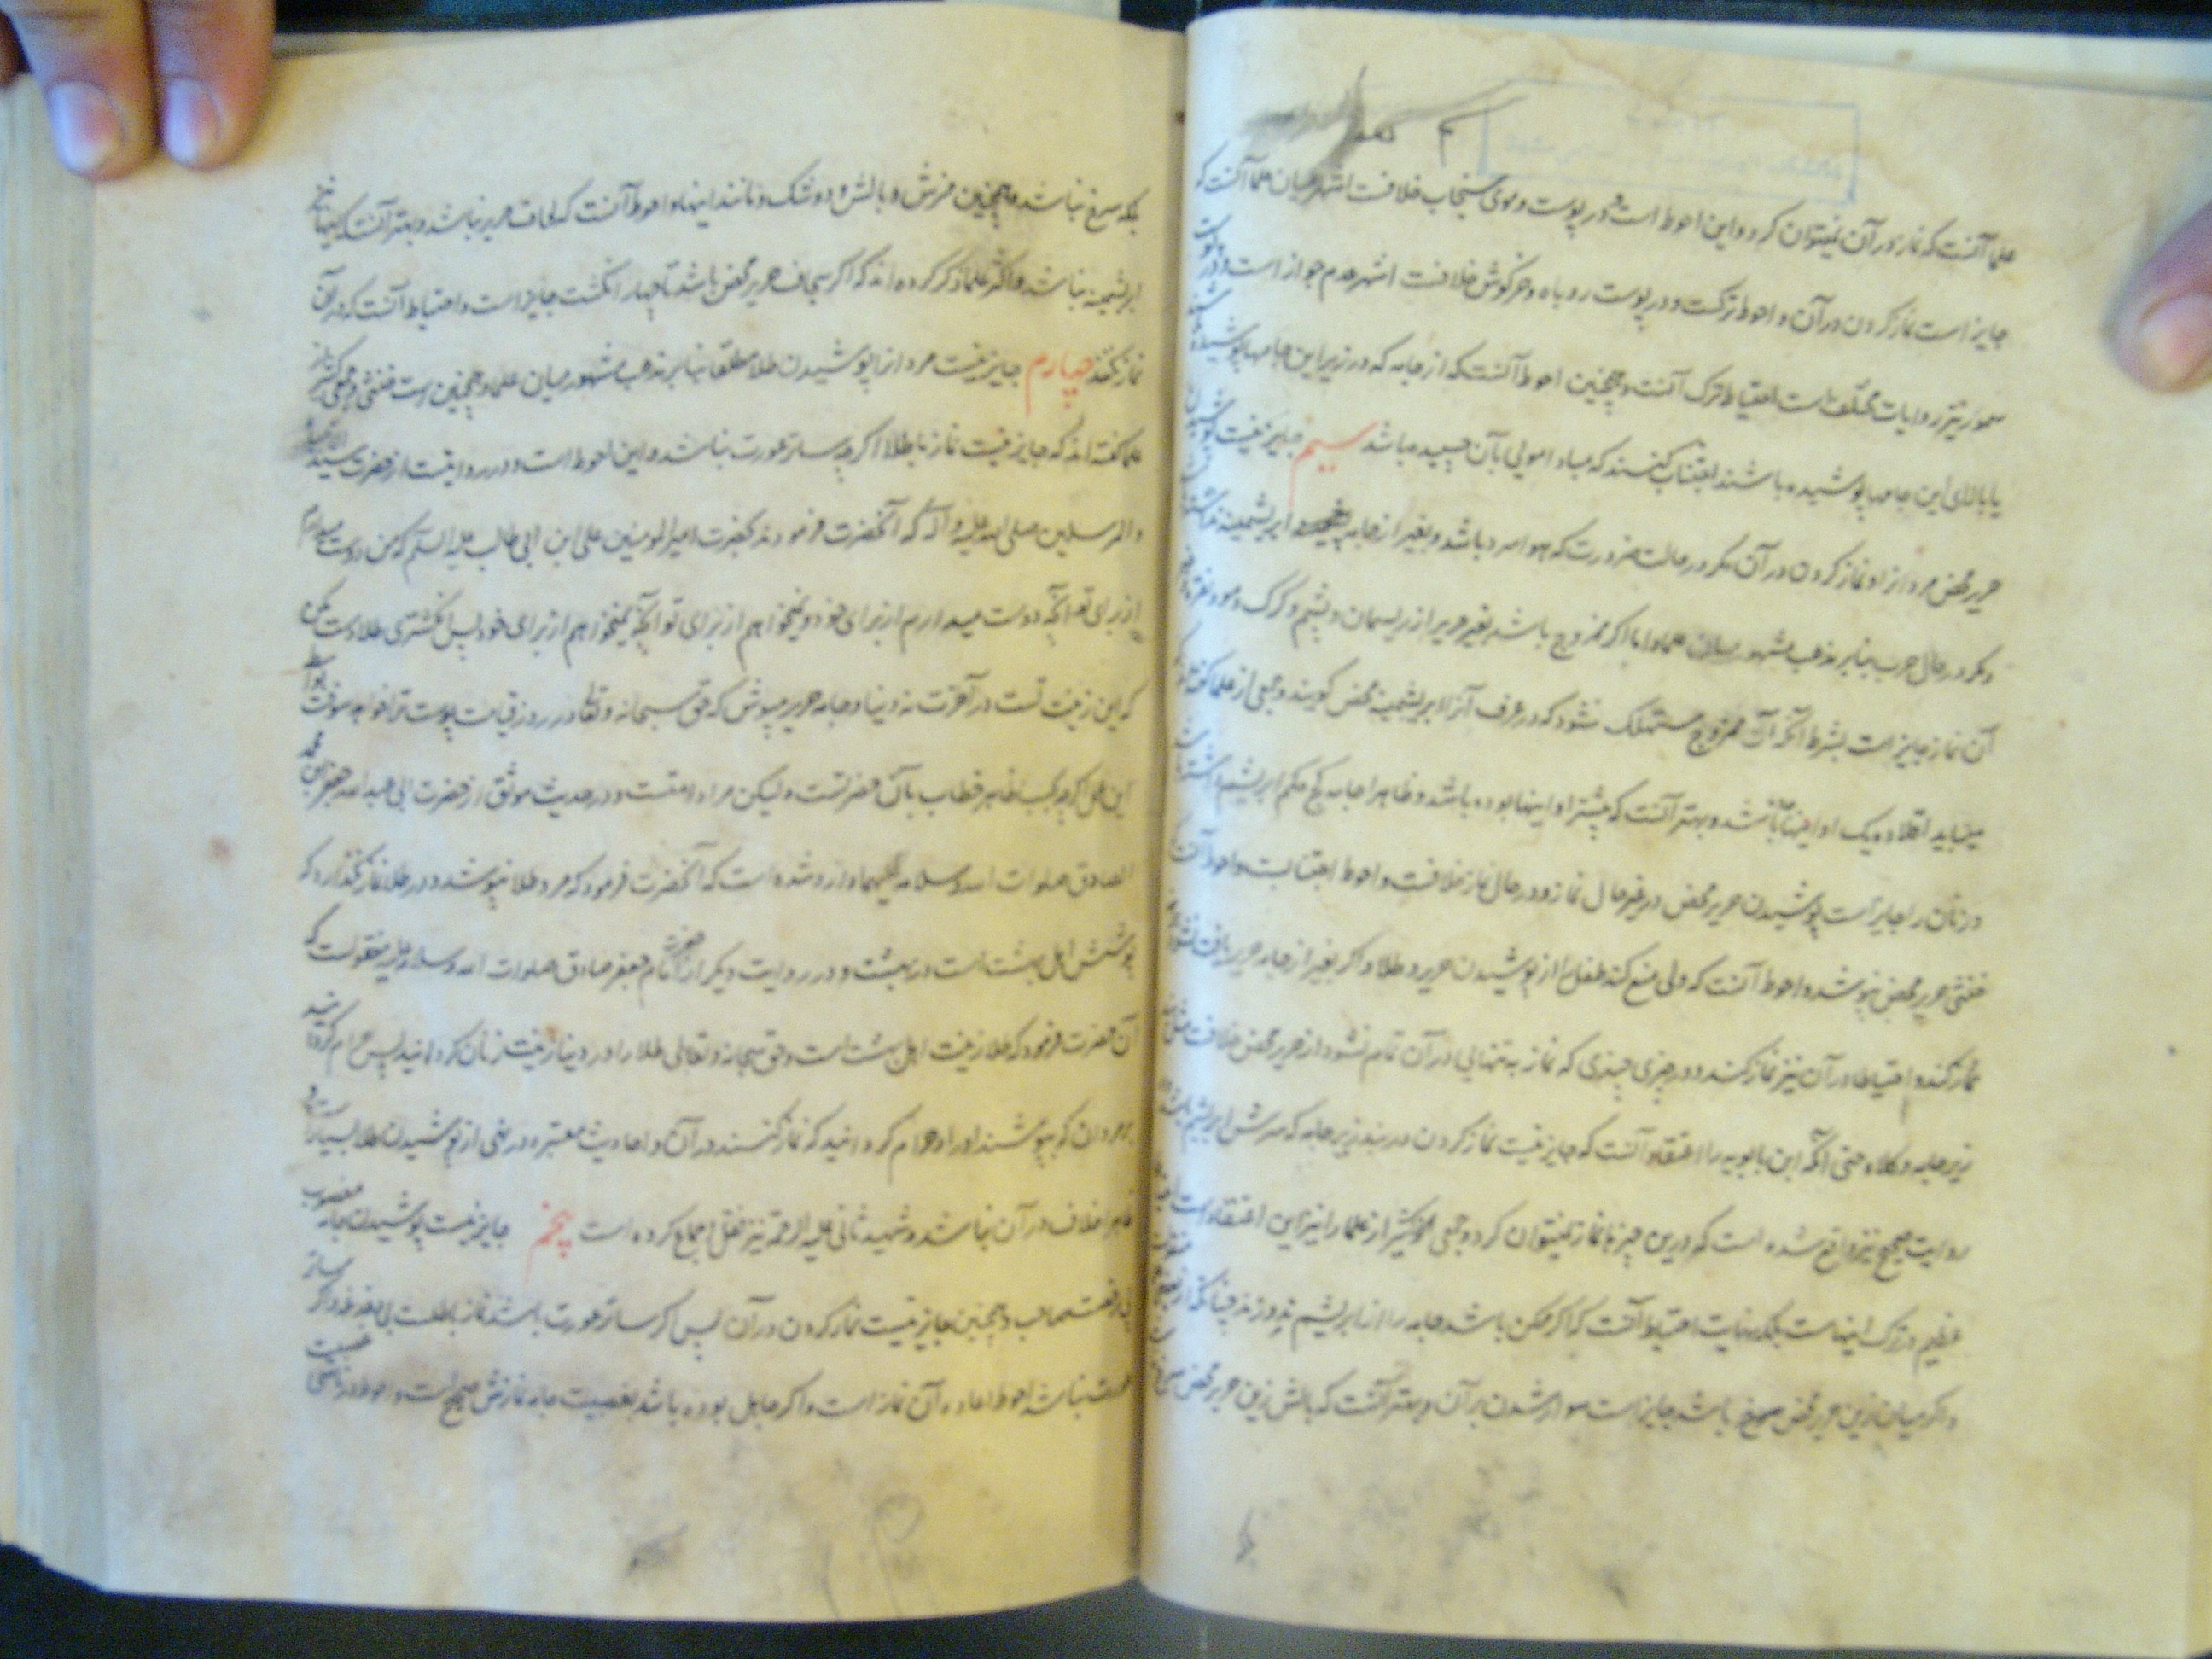 علما آنست که نماز در آن نمیتوان کرد و این احوط است و در پوست و موی سنجاب خلافست اشهر میان علما آنست که
جایز است نماز کردن در آن و احوط ترکست و در پوست روباه و خرگوش خلافست اشهر عدم جواز است و در
سمور نیز روایات مختلف است احتیاط ترک آنست و همچنین احوط آنست که از جامه که در زیر این جامها پوشیده
یا بالای این جامها پوشیده باشند اجتناب کنند که مبادا مویی بآن چسبیده باشد سیم جایز نیست پوشیدن
حریر محض مرد را و نماز کردن در آن مگر در حالت ضرورت که هوا سرد باشد و بغیر از جامه ابریشمینه نداشته
و مگر در حال حرب بنابر مذهب مشهور میان علما و اما اگر ممزوج باشد بغیر حریر از ریسمان و پشم و کرک و مو و نقره
آن نماز جایز است بشرط آنکه آن ممزوج مستهلک نشود که در عرف آنرا ابریشمینه محض گویند و جمعی از علما گفته
میباید اقلا ده یک او اینها باشد و بهتر آنست که بیشتر او اینها بوده باشد و ظاهرا جامه کج حکم ابریشم
و زنان را جایز است پوشیدن حریر محض در غیر حال نماز و در حال نماز خلافست و احوط اجتنابست و احوط آن
خنثی حریر محض نپوشد و احوط آنست که ولی منع کند طفل را از پوشیدن حریر و طلا و اگر بغیر از جامه حریر یافت نشود
نماز کند و احتیاطا در آن نیز نماز کند و در چیزی چندی که نماز به تنهایی در آن تمام نشود از حریر محض خلافست
زیر جامه و کلاه حتی آنکه ابن بابویه را اعتقاد آنست که جایز نیست نماز کردن در بند زیر جامه که سرش ابریشم باشد
روایت صحیح نیز واقع شده است که درین چیزها نماز نمیتوان کرد و جمعی کثیر از علما را نیز این اعتقاد است
عظیم در ترک اینهاست بلکه نهایت احتیاط آنست که اگر ممکن باشد جامه را از ابریشم ندوزند چنانکه از
و اگر میان زین حریر محض باشد جایز است سوار شدن بر آن و بهتر آنست که بالش زین حریر محض
بلکه سرخ نباشد و همچنین فرش و بالش و دوشک و مانند اینها و احوط آنست که لحاف حریر نباشد و بهتر آنست که اینها
ابریشمینه نباشد و اکثر علما ذکر کرده اند که اگر سجاف حریر محض باشد تا چهار انگشت جایز است و احتیاط آنست که در آن
نماز نکنند چهارم جایز نیست مرد را پوشیدن طلا مطلقا بنابر مذهب مشهور میان علما و همچنین است خنثی و جمعی کثیر از
علما گفته اند که جایز نیست نماز با طلا اگر چه ساتر عورت نباشد و این احوط است و در روایتست از حضرت سید الانبیاء
و المرسلین صلی الله علیه و آله که آنحضرت فرمودند بحضرت امیر المومنین علی ابن ابی طالب علیه السلم که من دوست میدارم
از برای تو آنچه دوست میدارم از برای خود و نمیخواهم از برای تو آنچه نمیخواهم از برای خود پس انگشتری طلا دست مکن
که این زینت تست در آخرت نه دنیا و جامه حریر مپوش که حق سبحانه و تعالی در روز قیامت پوست ترا خواهد سوخت بواسطه
این عمل اگرچه بحسب ظاهر خطاب بآن حضرتست و لیکن مراد امتست و در حدیث موثق از حضرت ابی عبد الله جعفر بن محمد
الصادق صلوات الله و سلامه علیهما وارد شده است که آنحضرت فرمود که مرد طلا نپوشد و در طلا نماز نگذارد که
پوشش اهل بهشت است در بهشت و در روایت دیگر از حضرت امام جعفر صادق صلوات الله و سلامه علیه منقولست که
آن حضرت فرمود که طلا زینت اهل بهشت است و حق سبحانه و تعالی طلا را در دنیا زینت زنان گردانید پس حرام گردانید
بر مردان که بپوشند او را و حرام گردانید که نماز کنند در آن و احادیث معتبره در نهی از پوشیدن طلا بسیار است
ظاهرا خلاف در آن نباشد و شهید ثانی علیه الرحمه نیز نقل اجماع کرده است پنجم جایز نیست پوشیدن جامه مغصوب
بی رخصت صاحب و همچنین جایز نیست نماز کردن در آن پس اگر ساتر عورت باشد نماز باطلست بی دغدغه و اگر ساتر
عورت نباشد احوط اعاده آن نماز است و اگر جاهل بوده باشد بغصبیت جامه نمازش صحیح است و احوط در